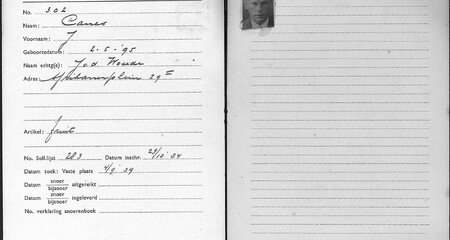 No. 302
Naam: Canes
Voornaam: J
Geboortedatum: 2-5-'95
Naam echtg(e): J. v.d. Woude
Adres: Afrikanerplein 29
Artikel: fruit
No. Soll.lijst 283 Datum inschr. 23/10 '34
Datum toek: Vaste plaats 4/9 '39
Datum snoer
bijsnoer uitgereikt
Datum snoer
bijsnoer ingeleverd
No. verklaring snoerenboek